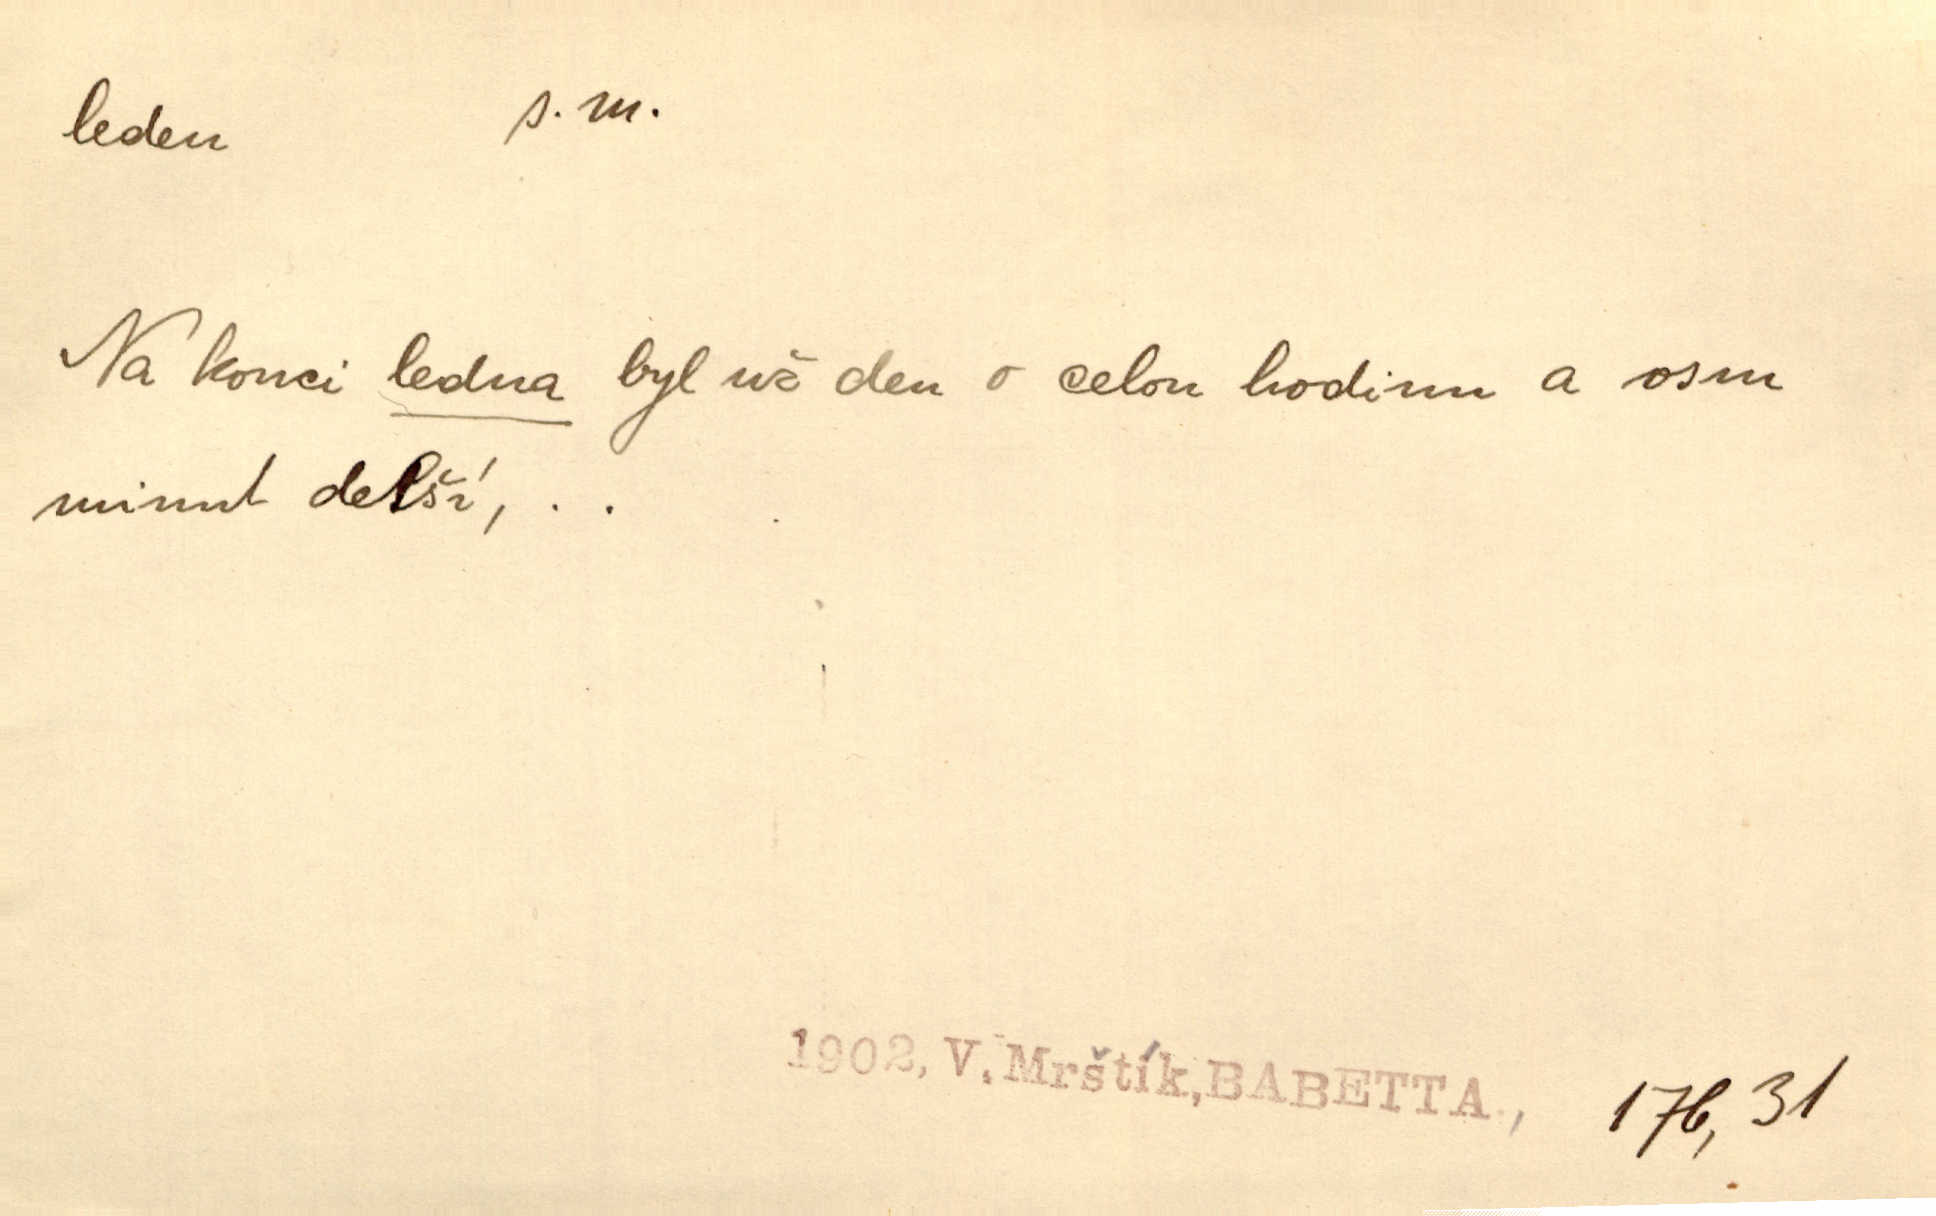 leden s. m.
Na konci ledna byl už den o celou hodinu a osm
minut delší, . .
1902, V. Mrštík, BABETTA., 176, 31